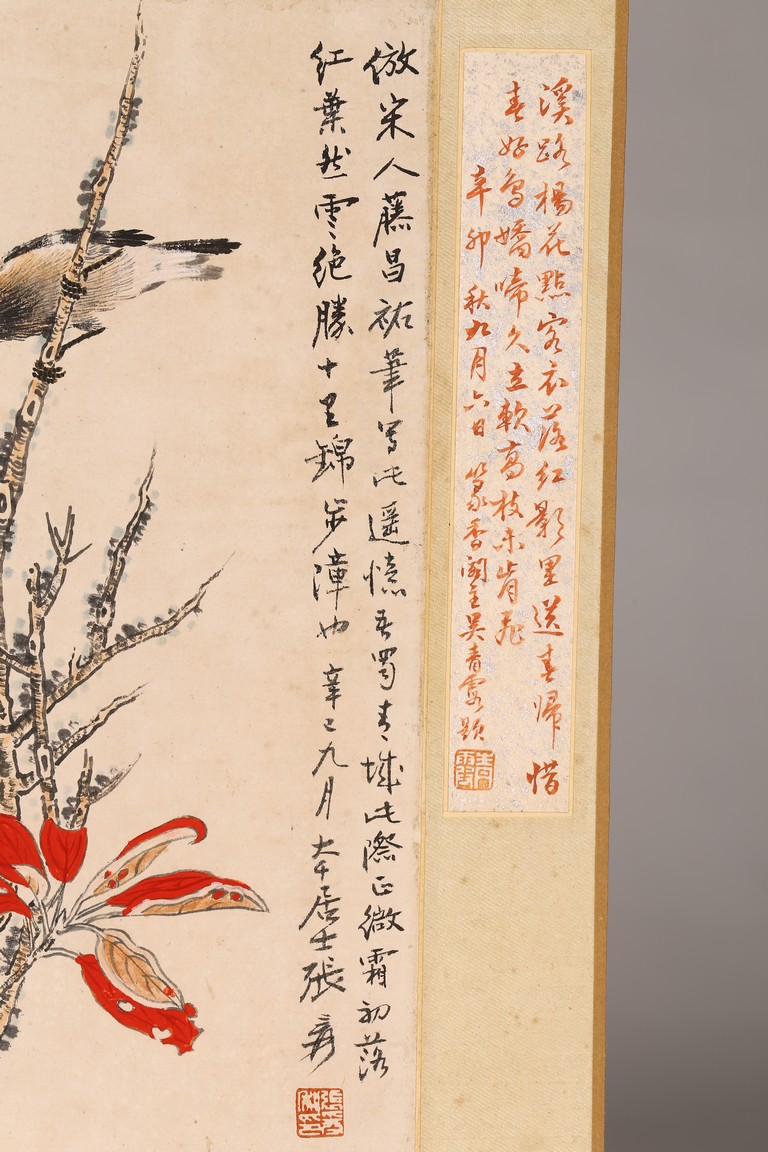 溪路楊花點客衣落紅影里送春歸惜
春好鳥嬌啼久立軟高枝未肯飛
辛卯秋九月六日篆香閣主吳青霞題
倣宋人藤昌祐筆寫此遥憶吾蜀青城此際正微霜初落
紅葉然雲絶勝十里錦步漳也辛巳九月大千居士張爰